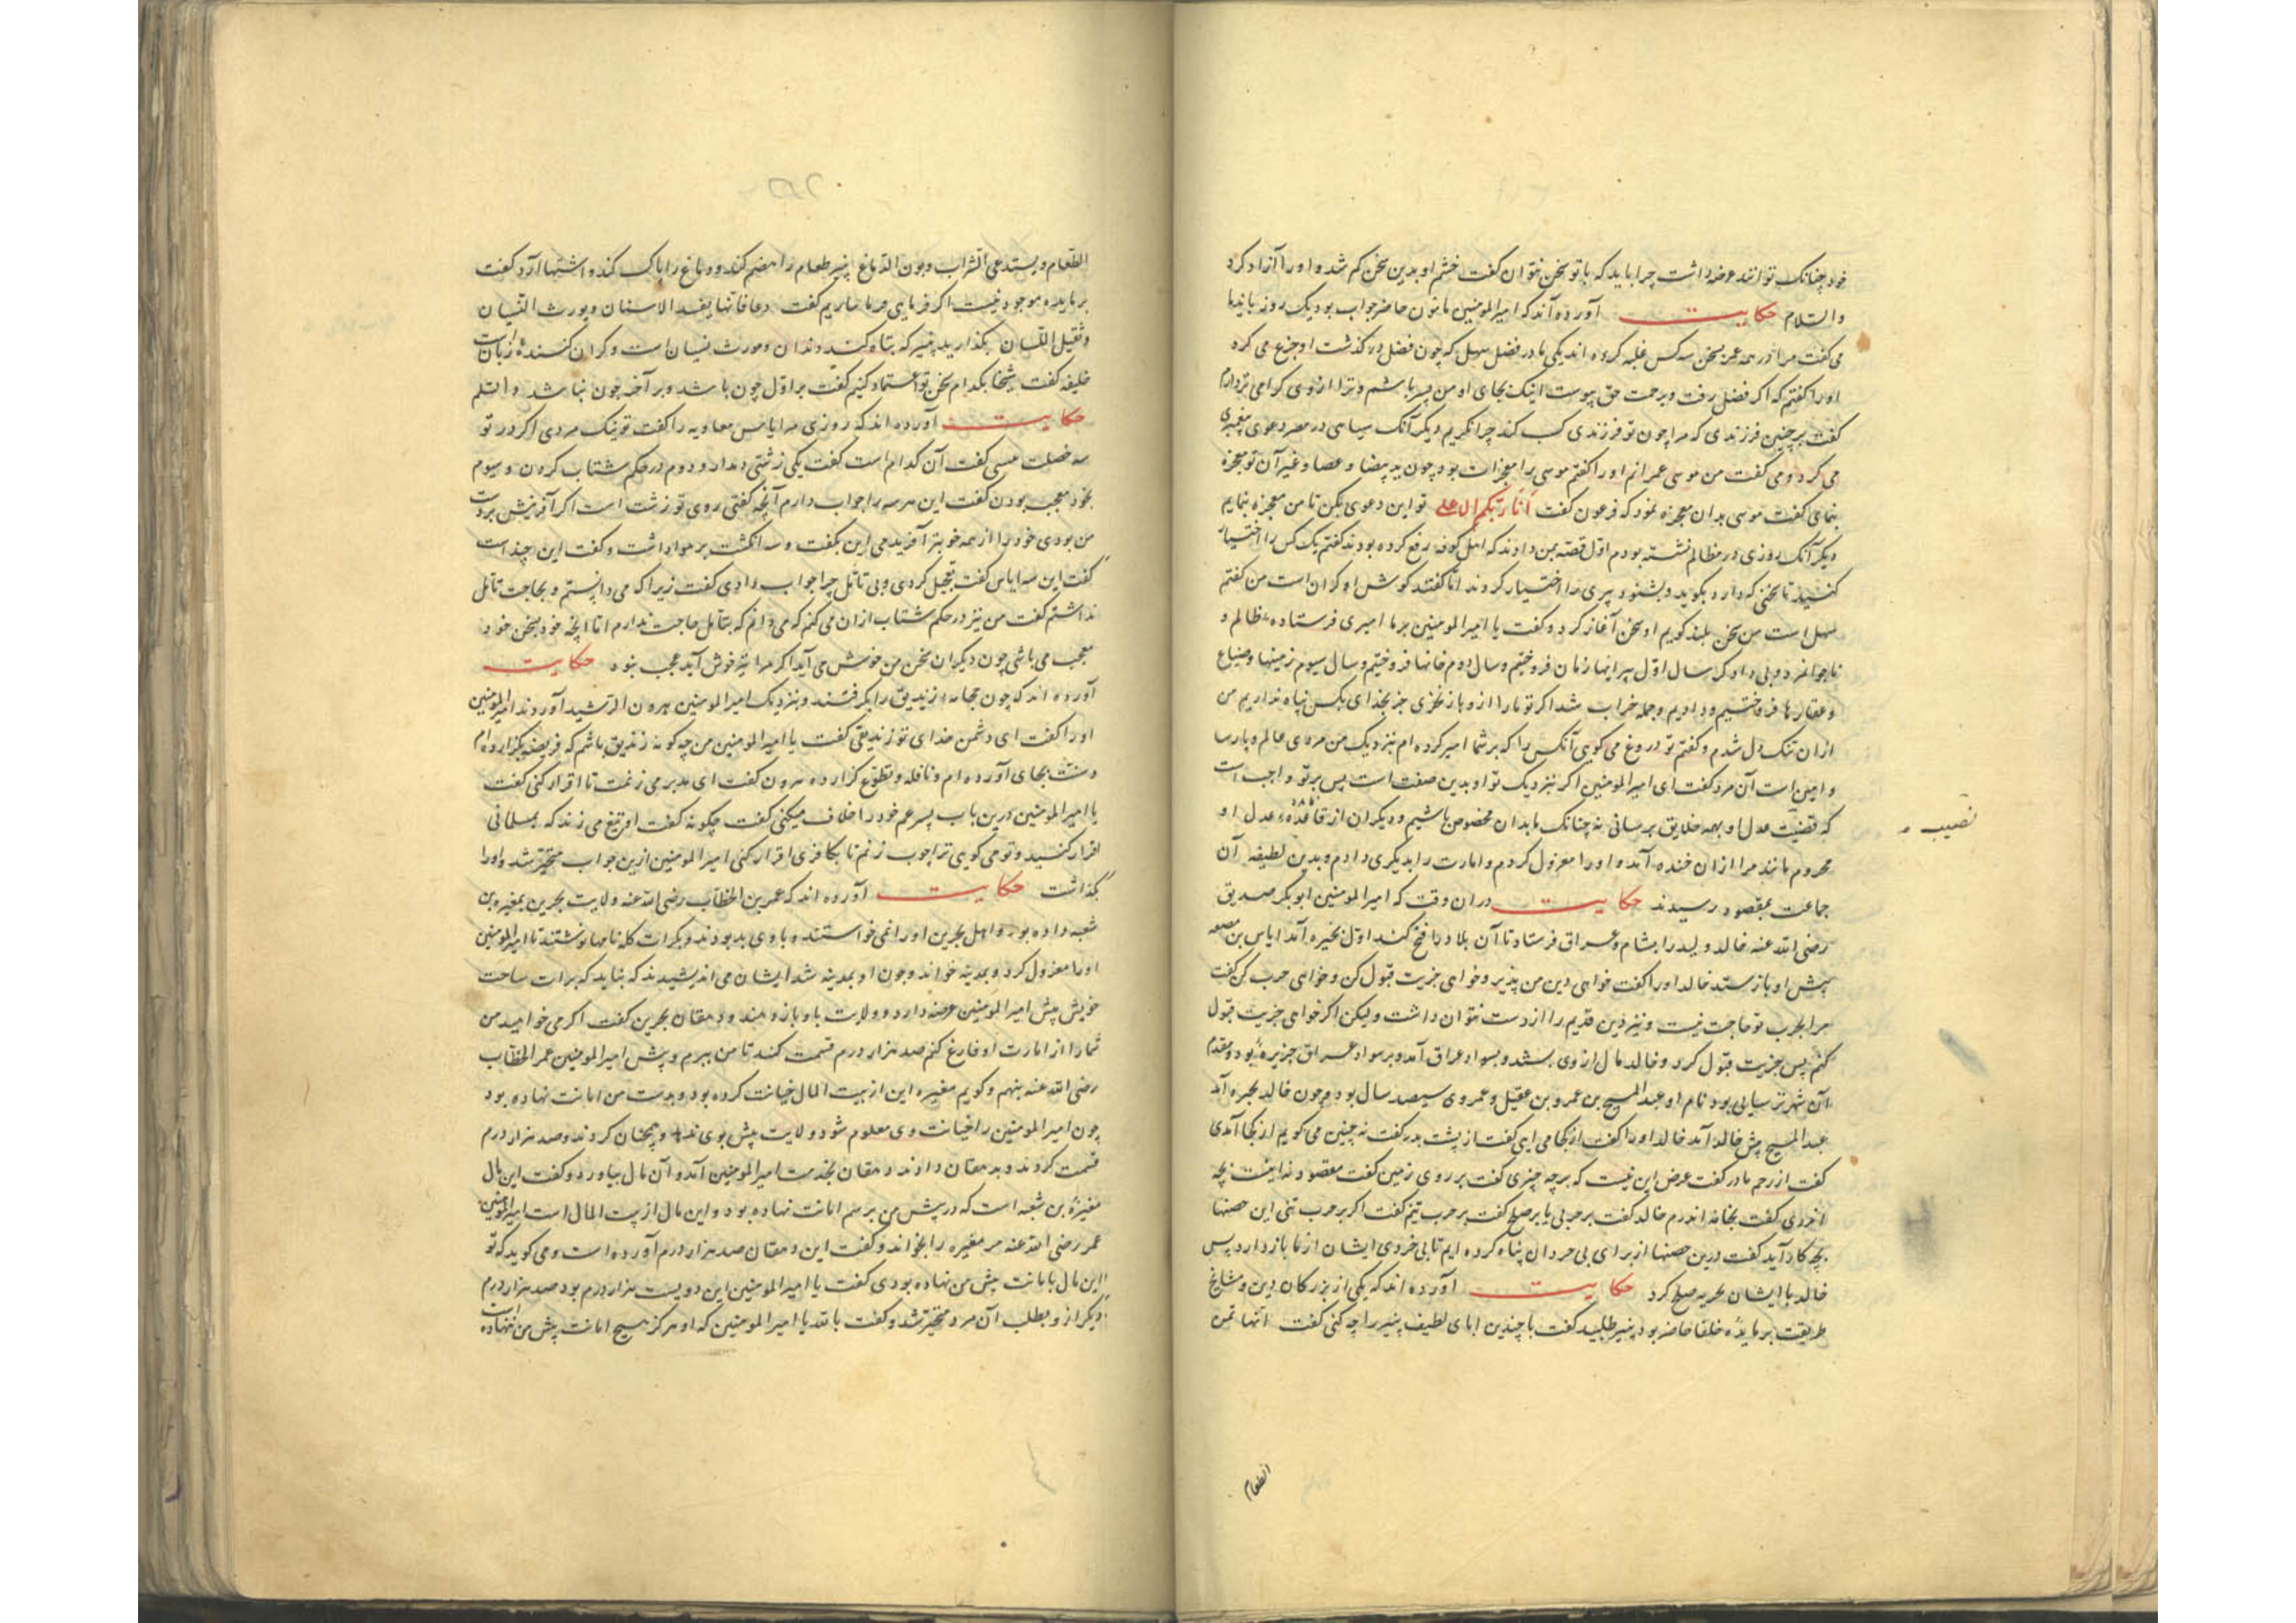 خود چنانک توانند عرضه داشت چرا باید که با تو سخن نتوان گفت خشم او بدین سخن کم شد و او را آزاد کرد
والسلام حکایت آورده‌اند که امیرالمومنین مامون حاضر جواب بود یک روز باندما
می گفت مرا در همه عمر بسخن سه کس غلبه کرده اند یکی مادر فضل سهل که چون فضل درگذشت او جزع می کرد
او را گفتم که اگر فضل رفت و برحمت حق پیوست اینک بجای او من پسر باشم و ترا از وی گرامی تر دارم
گفت بر چنین فرزندی که مرا چون تو فرزندی کسب کند چرا نگریم دیگر آنک سیاسی در مصر دعوی پیغمبری
می کرد و می گفت من موسی عمرانم او را گفتم موسی را معجزات بود چون ید بیضا و عصا و غیر آن تو معجزه
بنمای گفت موسی بدان معجزه نمود که فرعون گفت انا ربکم الاعلی تو این دعوی بکن تا من معجزه بنمایم
دیگر آنک روزی در مظالم نشسته بودم اول قصه بمن دادند که اهل کوفه رفع کرده بودند گفتم یک کس را اختیار
کنید تا سخنی که دارد بگوید و بشنود پیری را اختیار کردند اما گفتند گوش او گران است من گفتم
سهل است من سخن بلند گویم او سخن آغاز کرد و گفت یا امیرالمومنین بر ما امیری فرستاده ظالم و
ناجوانمرد و بی داد که سال اول پیرایها زنان فروختیم و سال دوم خانها فروختیم و سال سیوم زمینها و ضیاع
و عقارها فروختیم و دادیم و جمله خراب شد اگر تو ما را از وی باز نخری جز بخدای بکس پناه نداریم من
ازان تنک دل شدم و گفتم تو دروغ می گویی آنکس را که بر شما امیر کرده ام نیزدیک من مردی عالم و پارسا
و امین است آن مرد گفت ای امیرالمومنین اگر نیزدیک تو او بدین صفت است پس بر تو واجب است
که قضیت عدل او بهمه خلایق برسانی نه چنانک ما بدان مخصوص باشیم و دیگران از فائده عدل او
نصیب
محروم مانند مرا ازان خنده آمد و او را معزول کردم و امارت را بدیگری دادم و بدین لطیفه آن
جماعت بمقصود رسیدند حکایت دران وقت که امیرالمومنین ابوبکر صدیق
رضی الله عنه خالد ولید را بشام و عراق فرستاد تا آن بلاد را فتح کند اول بحیره آمد ایاس بن
پیش او باز ستد خالد او را گفت خواهی دین من پذیر و خواهی جزیت قبول کن و خواهی حرب کن گفت
مرا بحرب تو حاجت نیست و نیز دین قدیم را از دست نتوان داشت ولیکن اگر خواهی جزیت قبول
کنم پس جزیت قبول کرد و خالد مال از وی بستد و بسواد عراق آمد و بر سواد عراق جزیره بود و مقدم
آن شهر ترسایی بود نام او عبدالمسیح بن عمرو بن عقیل و عمر وی سیصد سال بود و چون خالد بحیره آمد
عبدالمسیح پیش خالد آمد خالد او را گفت از کجا می آیی گفت از پشت پدر گفت نه چنین می گویم از کجا آمدی
گفت از رحم مادر گفت غرض این نیست که بر چه چیزی گفت بر روی زمین گفت مقصود نه اینست بچه
اندری گفت بجامه اندرم خالد گفت بر حربی یا بر صلح گفت بر حرب نیم گفت اگر بر حرب نئی این حصنها
بچه کار آید گفت درین حصنها از برای بی خردان پناه کرده ایم تا بی خردی ایشان از ما باز دارد پس
خالد با ایشان بجزیه صلح کرد حکایت آورده اند که یکی از بزرگان دین و مشایخ
طریقت بر مایده خلفا حاضر بود پنیر طلبید گفت با چندین ابای لطیف پنیر را چه کنی گفت انها تمن
الطعام
الطعام و یستدعی الشراب و یون الدماغ پنیر طعام را هضم کند و دماغ را پاک کند و اشتها آرد گفت
بر مایده موجود نیست اگر فرمایی حاریم گفت دعافانها یفسد الاسنان و یورث النسیان
و ثقیل اللسان بگذارید پنیر که تباه کننده دندان و مورث نسیان است و گران کننده زبان است
خلیفه گفت شیخا بکدام سخن تو اعتماد کنیم گفت بر اول چون باشد و بر آخر چون نباشد والسلم
حکایت آورده اند که روزی مر ایاس معاویه را گفت تو نیک مردی اگر در تو
سه خصلت نیستی گفت آن کدام است گفت یکی زشتی دیدار و دوم در حکم شتاب کردن و سیوم
بخود معجب بودن گفت این هر سه را جواب دارم آنچه گفتی روی تو زشت است اگر آفرینش بدست
من بودی خود را از همه خوبتر آفریدمی این بگفت و سه انگشت بر هوا داشت و گفت این چند است
گفت این سه ایاس گفت تعجیل کردی و بی تامل چرا جواب دادی گفت زیرا که می دانستم و بحاجت تامل
نداشتم گفت من نیز در حکم شتاب ازان می کنم که می دانم که بتامل حاجت ندارم اما آنچه خود بسخن خود
معجب می باشی چون دیگران سخن من خوش می آید اگر مرا نیز خوش آید عجب نبود حکایت
آورده اند که چون زندیق را بگرفتند و بنزدیک امیرالمومنین هرون الرشید آوردند امیرالمومنین
او را گفت ای دشمن خدای تو زندیقی گفت یا امیرالمومنین من چه گونه زندیق باشم که فریضه بگزارده ام
و سنت بجای آورده ام و نافله و تطوع گزارده هرون گفت ای مدبر می زنمت تا اقرار کنی گفت
یا امیرالمومنین درین باب پسر عم خود را خلاف میکنی گفت چگونه گفت او تیغ می زند که بمسلمانی
اقرار کنید و تو می گویی ترا چوب زنم تا بکافری اقرار کنی امیرالمومنین ازین جواب متحیر شد و او را
بگذاشت حکایت آورده اند که عمر بن الخطاب رضی الله عنه ولایت بحرین بمغیره بن
شعبه داده بود و اهل بحرین او را نمی خواستند و با وی بد بودند و بکرات گله نامها نوشتند تا امیرالمومنین
او را معزول کرد و بمدینه خواند و چون او بمدینه شد ایشان می اندیشیدند که نباید که برات ساحت
خویش پیش امیرالمومنین عرضه دارد و ولایت با او باز دهند و دهقان بحرین گفت اگر می خواهید من
شما را از امارت او فارغ کنم صد هزار درم قسمت کنید تا من ببرم و پیش امیرالمومنین عمر الخطاب
رضی الله عنه بنهم و گویم مغیره این از بیت المال خیانت کرده بود و بدست من امانت نهاده بود
چون امیرالمومنین را خیانت وی معلوم شود ولایت پیش بوی ندهد و همچنان کردند و صد هزار درم
قسمت کردند و بدهقان دادند دهقان بخدمت امیرالمومنین آمد و آن مال بیاورد و گفت این مال
مغیره بن شعبه است که در پیش من برسم امانت نهاده بود و این مال از بیت المال است امیرالمومنین
عمر رضی الله عنه مر مغیره را بخواند و گفت این دهقان صد هزار درم آورده است و می گوید که تو
این مال بامانت پیش من نهاده بودی گفت یا امیرالمومنین این دویست هزار درم بود صد هزار درم
دیگر از و بطلب آن مرد متحیر شد و گفت بالله یا امیرالمومنین که او هرگز هیچ امانت پیش من ننهاده